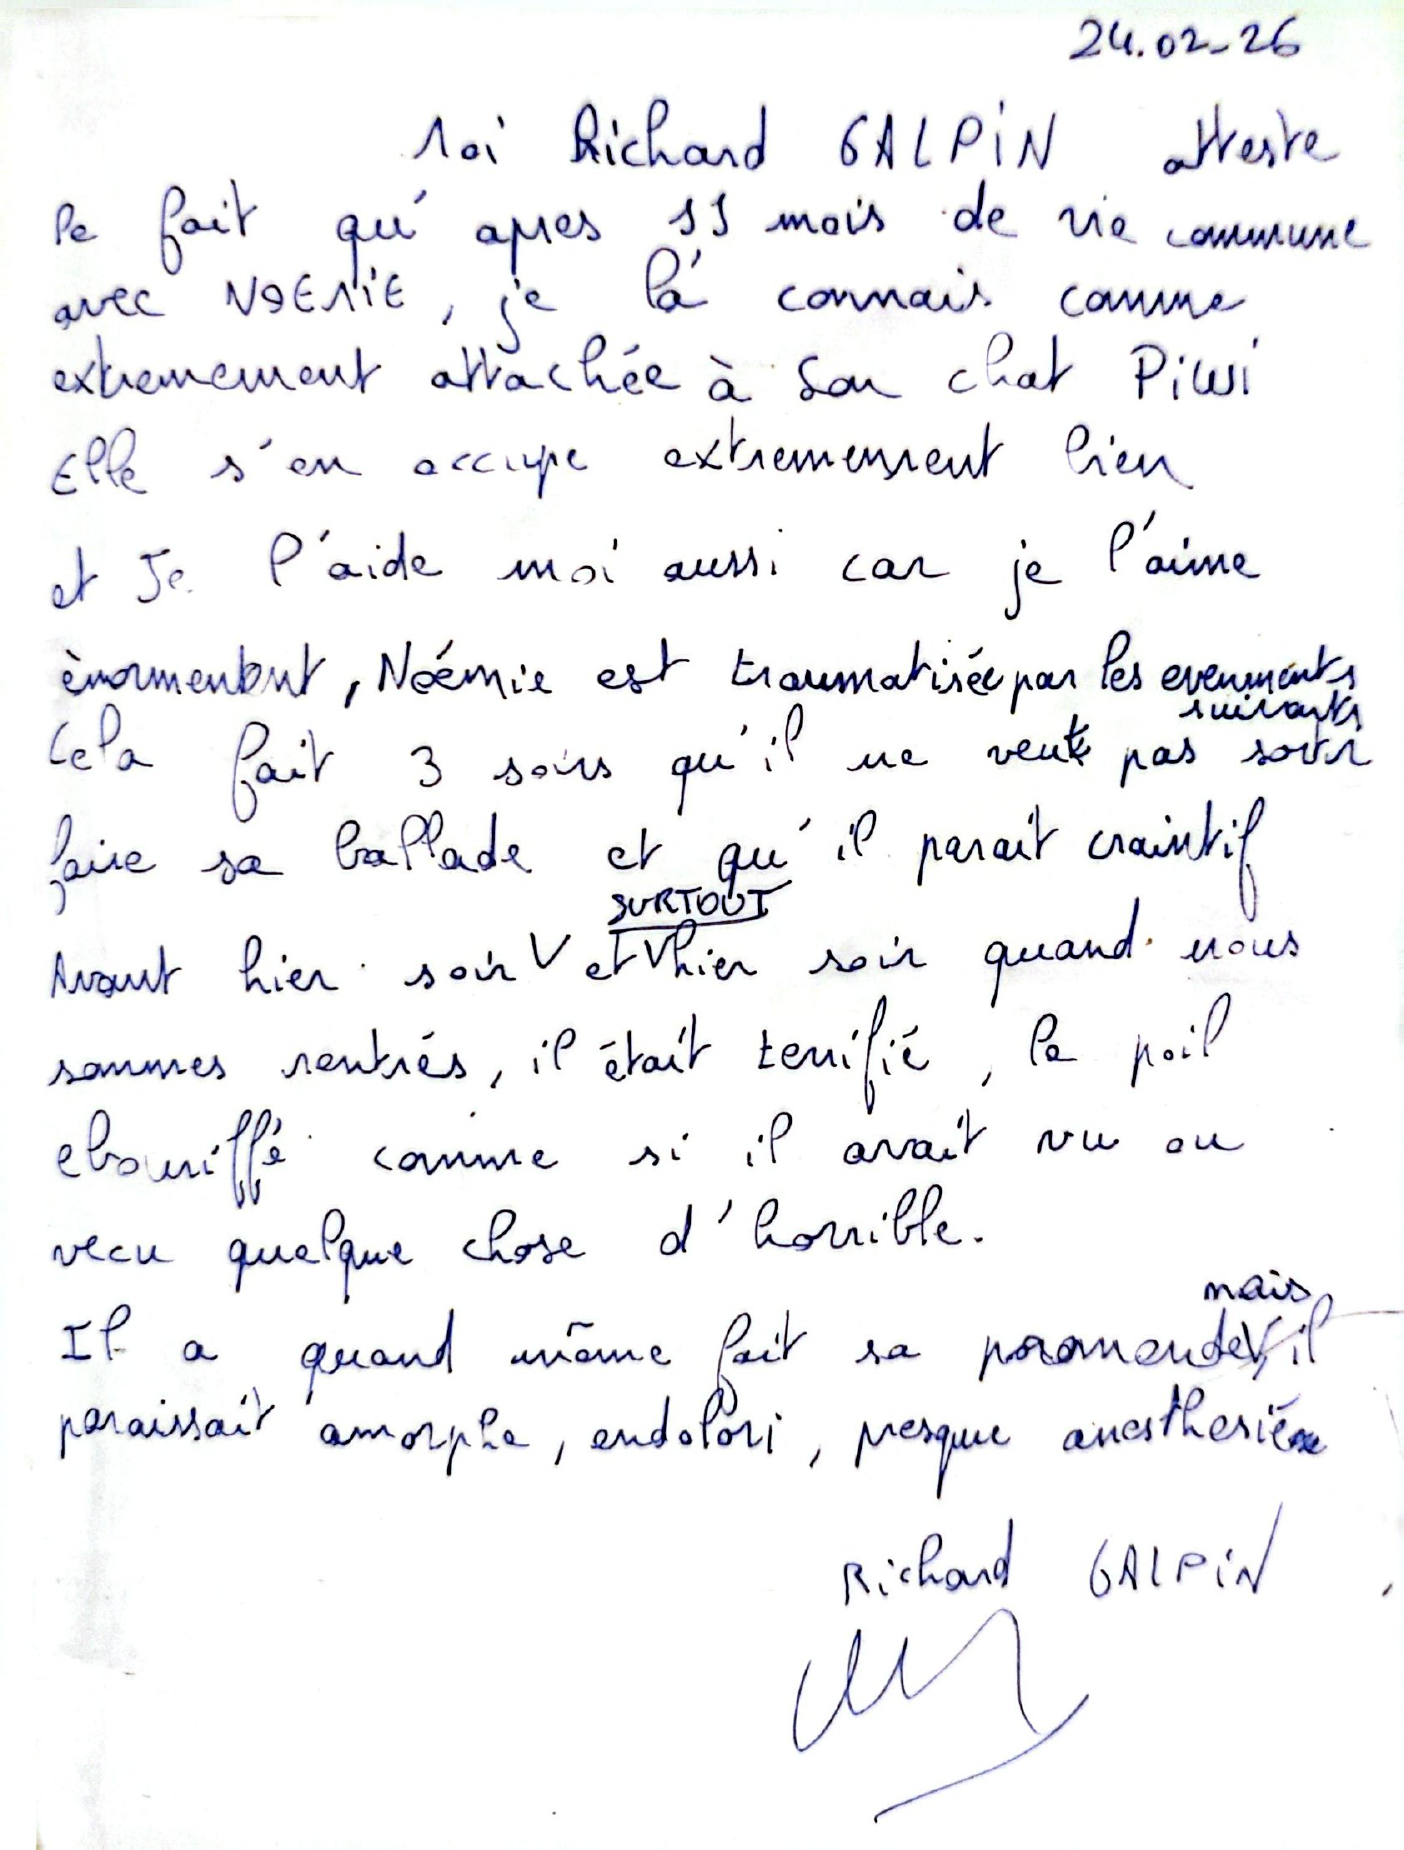 24.02-26
Moi Richard GALPIN atteste
le fait qu'apres 11 mois de vie commune
avec NOEMIE, je la connais comme
extremement attachée à son chat Piwi
Elle s'en occupe extremement bien
et Je l'aide moi aussi car je l'aime
énormement, Noémie est traumatisée par les evenements
suivants
Cela fait 3 soirs qu'il ne veut pas sortir
faire sa ballade et qu'il parait craintif
SURTOUT
Avant hier soir V et V hier soir quand nous
sommes rentrés, il était terrifié, le poil
ebouriffé comme si il avait vu ou
vecu quelque chose d'horrible.
mais
Il a quand même fait sa V, il
paraissait amorphe, endolori, presque anesthesié
Richard GALPIN